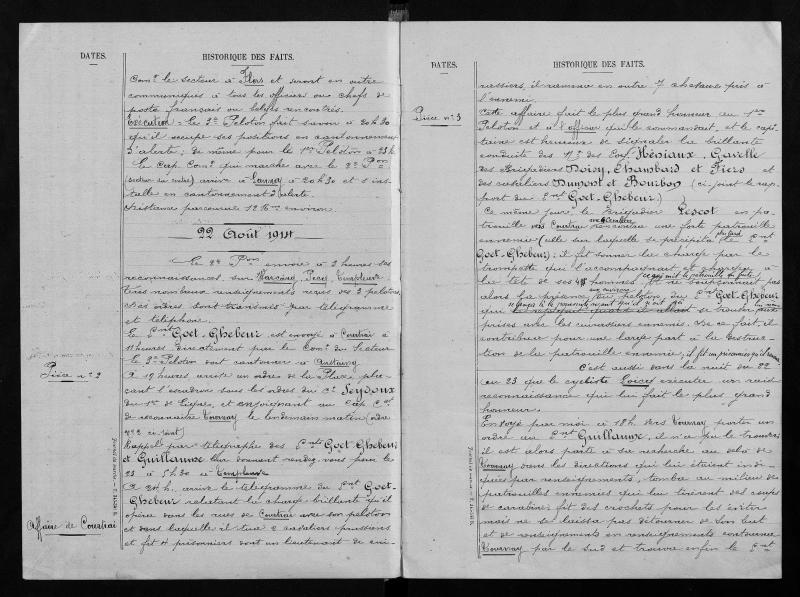 DATES.
HISTORIQUE DES FAITS.
Comt le secteur à Flers et seront en outre
communiqués à tous les officiers ou chefs de
poste français ou belges rencontrés.
Exécution = Le 2e Peloton fait savoir à 20h30
qu'il occupe ses positions en cantonnement
d'alerte ; de même pour le 1er Peloton à 23h
Le Cap. Comt qui marches avec le 2e Pon
arrive à Lannoy à 20h30 et s'ins-
talle en cantonnement d'alerte.
Distance parcourue 12 Km environ.
22 Août 1914
Le 2e Pon envoie à 2 heures ses
reconnaissances sur
Très nombreux renseignements reçus des 2 pelotons
Ces ordres sont transmis par télégramme
et téléphone.
Le Lnt Goet-Ghebeur est envoyé à Courtrai à
11 heures directement par le Comt du Secteur
Le 2e Peloton doit cantonner à
Pièce n° 2
A 19 heures arrive un ordre de la Place pla-
çant l'escadron sous les ordres du Ct Seydoux
du 1er de Ligne, et enjoignant au Cap. Ct
de reconnaître Tournay le lendemain matin (ordre
n° 2 ci-joint)
Rappel par télégraphe des Lnts Goet-Ghebeur
et Guillaume leur donnant rendez-vous pour le
23 à 5h30 à Templeuve
A 24h. arrive le télégramme du Lnt Goet-
Ghebeur relatant la charge brillante qu'il
opère dans les rues de Courtrai avec son peloton
Affaire de Courtrai
et dans laquelle il tue 2 cavaliers prussiens
et fit 4 prisonniers dont un lieutenant de cui-
DATES.
HISTORIQUE DES FAITS.
rassiers, il ramène en outre 7 chevaux pris à
l'ennemi.
Pièce n° 3
Cette affaire fait le plus grand honneur au 1er
Peloton et à l'officier qui le commandait, et le capi-
taine est heureux de signaler la brillante
conduite des Mis des Logis Hésiaux, Gavelle
des Brigadiers Noisy, Chambard et Fiers et
des cavaliers Dumont et Bourbon (ci-joint le rap-
port du Lnt Goet-Ghebeur.)
Ce même jour le Brigadier Lescot en pa-
avec 4 cavaliers
trouille vers Courtrai rencontra une forte patrouille
plus tard
ennemie (celle sur laquelle se précipita le Lnt
Goet-Ghebeur) ; il fit sonner la charge par le
trompette qui l'accompagnait et chargea à
la tête de ses 4 hommes
alors la présence du peloton du Lnt Goet-Ghebeur
qui
prises avec les cuirassiers ennemis. De ce fait, il
contribue pour une large part à la destruc-
tion de la patrouille ennemie, il fit un prisonnier qu'il ramène
C'est aussi dans la nuit du 22
au 23 que le cycliste Loicq exécuter un raid
reconnaissance qui lui fait le plus grand
honneur.
Envoyé par moi à 18h. vers Tournay porter un
ordre au Lnt Guillaume, il n'a pu le trouver
il est alors parti à sa recherche au delà de
Tournay dans les directions qui lui étaient indi-
quées par renseignements, tomba au milieu de
patrouilles ennemies qui lui tirèrent des coups
de carabine, fit des crochets pour les éviter
mais ne se laissa pas détourner de son but
et de renseignements en renseignements contourne
Tournay par le sud et trouve enfin le Lnt